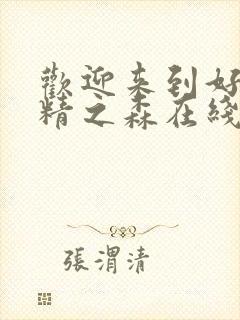 歡迎来到好
精之森在綫
張渭清